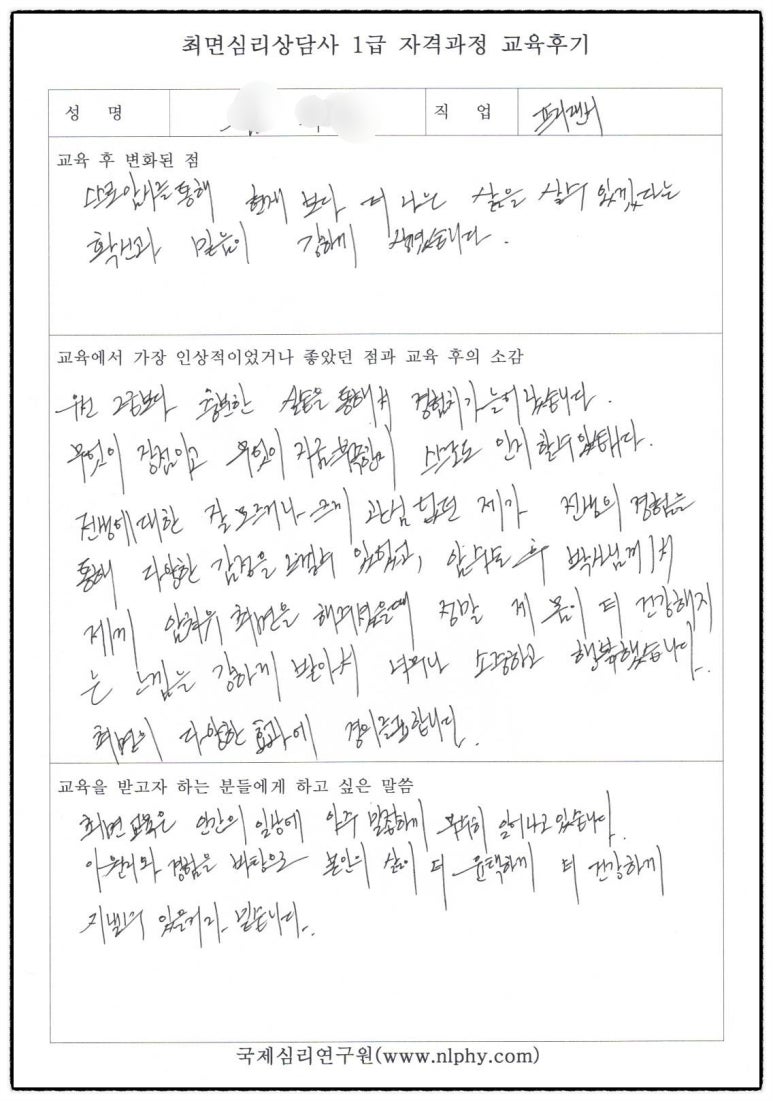 최면심리상담사 1급 자격과정 교육후기
성 명
직 업 프리랜서
교육 후 변화된 점
스로암시를 통해 현재 보다 더 나은 삶을 살수 있겠다는
확신과 믿음이 강하게 생겼습니다.
교육에서 가장 인상적이었거나 좋았던 점과 교육 후의 소감
우선 2급보다 충분한 실습을 통해서 경험치가 늘어 났습니다.
무엇이 장점이고 무엇이 지금 부족함이 스스로도 인지 할수있습니다.
전생에 대한 잘 모르거나 크게 관심 없던 제가 전생의 경험을
통해 다양한 감정을 느낄수 있었고, 박사님께서
제게 최면을 해주셨을때 정말 제 몸이 더 건강해지
는 느낌을 강하게 받아서 너무나 소중하고 행복했습니다.
최면의 다양한 효과에 합니다.
교육을 받고자 하는 분들에게 하고 싶은 말씀
최면 교육은 인간의 일상에 아주 밀접하게 무수히 일어나고 있습니다.
이 원리와 경험을 바탕으로 본인의 삶이 더 윤택하게 더 건강하게
지낼수 있을거라 믿습니다.
국제심리연구원(www.nlphy.com)